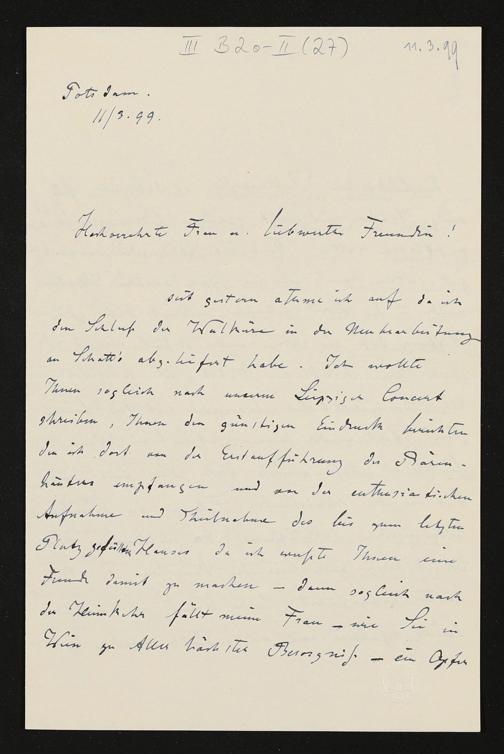 III B20-II (27)
11.3.99
Potsdam.
11/3.99.
Hochverehrte Frau u. liebwerte Freundin!
seit gestern atme ich auf da ich
den Schluß der Walküre in der Neubearbeitung
an Schott's abgeliefert habe. Ich wollte
Ihnen sogleich nach unserem Leipziger Concert
schreiben, Ihnen den günstigen Eindruck berichten
den ich dort von der Erstaufführung des Bären-
häuters empfangen und von der enthusiastischen
Aufnahme und Theilnahme des bis zum letzten
Platz gefüllten Hauses da ich wußte Ihnen eine
Freude damit zu machen – dann sogleich nach
der Heimkehr fällt meine Frau – wie Sie in
Wien zu Aller höchsten Besorgniß – ein Opfer